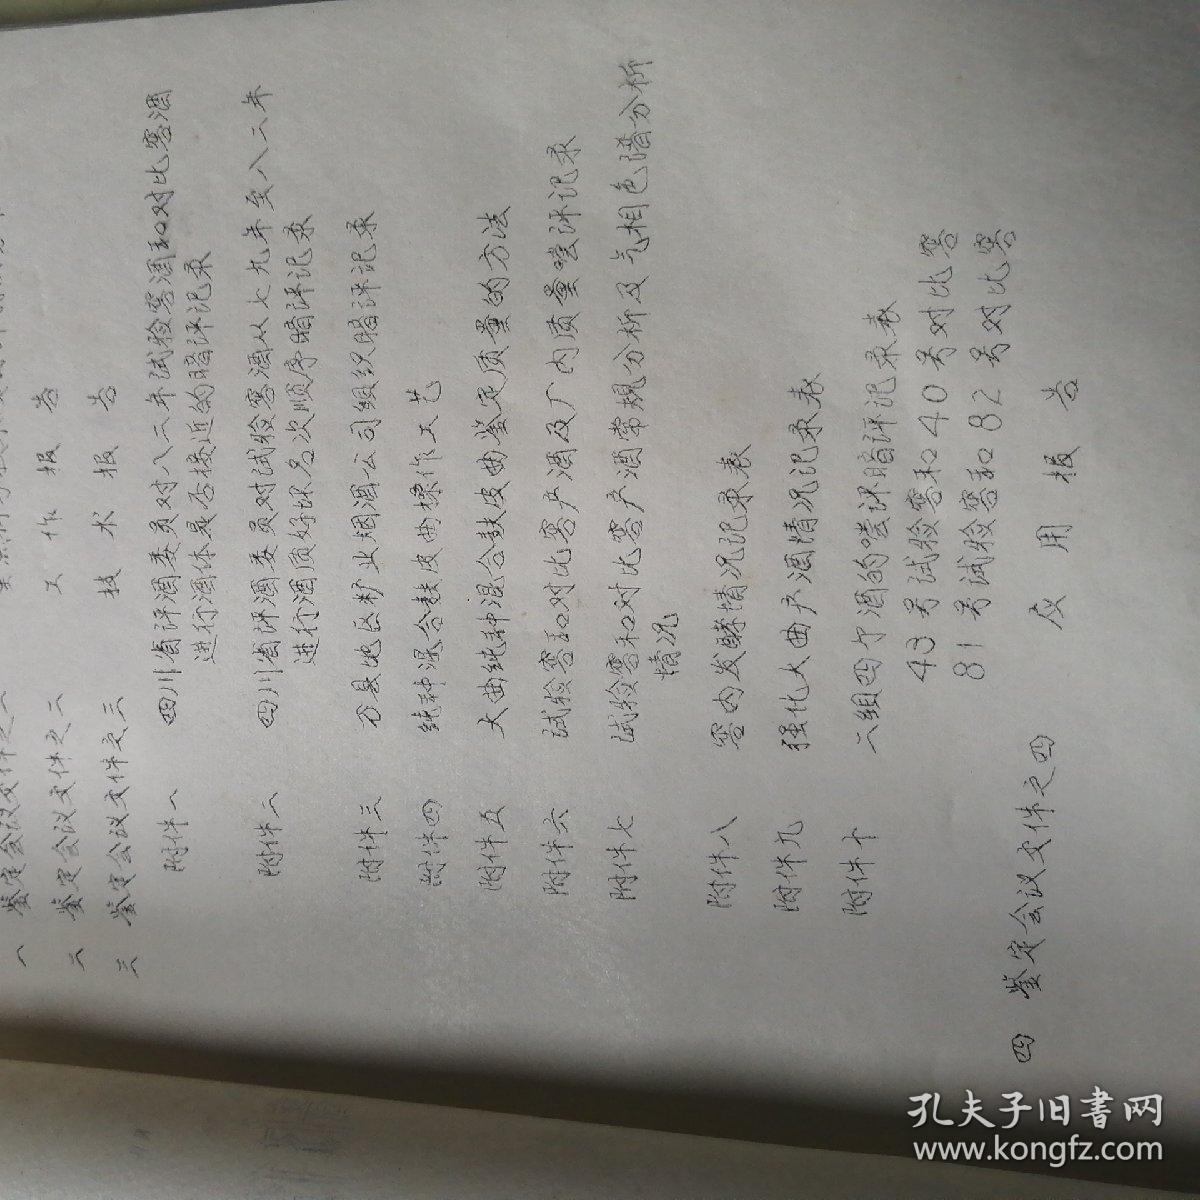 一 鉴定会议文件之一
二 鉴定会议文件之二 工作报告
三 鉴定会议文件之三 技术报告
附件一 四川省评酒委员对八二年试验窖酒和对比窖酒
进行酒体是否接近的暗评记录
附件二 四川省评酒委员对试验窖酒从七九年至八二年
进行酒质好坏名次顺序暗评记录
附件三 万县地区糖业烟酒公司组织暗评记录
附件四 纯种混合麸皮曲操作工艺
附件五 大曲纯种混合麸皮曲鉴定质量的方法
附件六 试验窖和对比窖产酒及厂内质量尝评记录
附件七 试验窖和对比窖产酒常规分析及气相色谱分析
情况
附件八 窖内发酵情况记录表
附件九 强化大曲产酒情况记录表
附件十 二组四个酒的尝评暗评记录表
43号试验窖和40号对比窖
81号试验窖和82号对比窖
四 鉴定会议文件之四 应用报告
孔夫子旧書网
www.kongfz.com